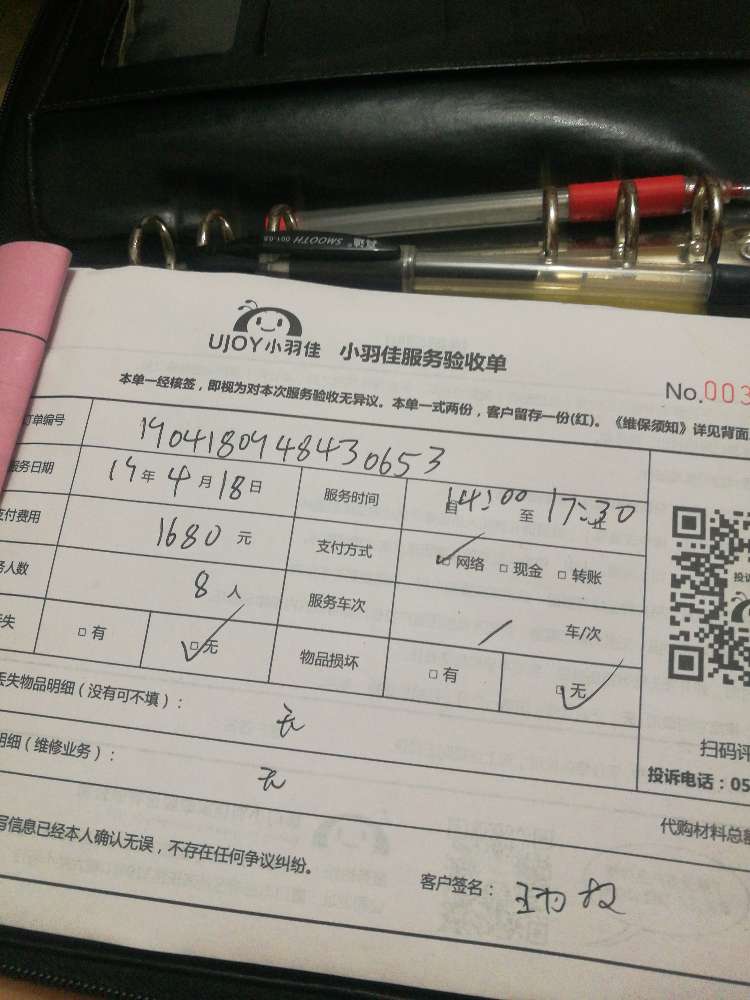 SMOOTH 001-03
UJOY小羽佳 小羽佳服务验收单
No.003
本单一经核签，即视为对本次服务验收无异议。本单一式两份，客户留存一份(红)。《维保须知》详见背面
订单编号 190418094843 0653
服务日期 19年4月18日 服务时间 自14:00至17:30止
支付费用 1680元 支付方式 □网络 □现金 □转账
务人数 8人 服务车次 / 车/次
丢失 □有 □无 物品损坏 □有 □无
丢失物品明细（没有可不填）： 无
明细（维修业务）： 无
扫码评
投诉电话：05
代购材料总额
写信息已经本人确认无误，不存在任何争议纠纷。
客户签名：